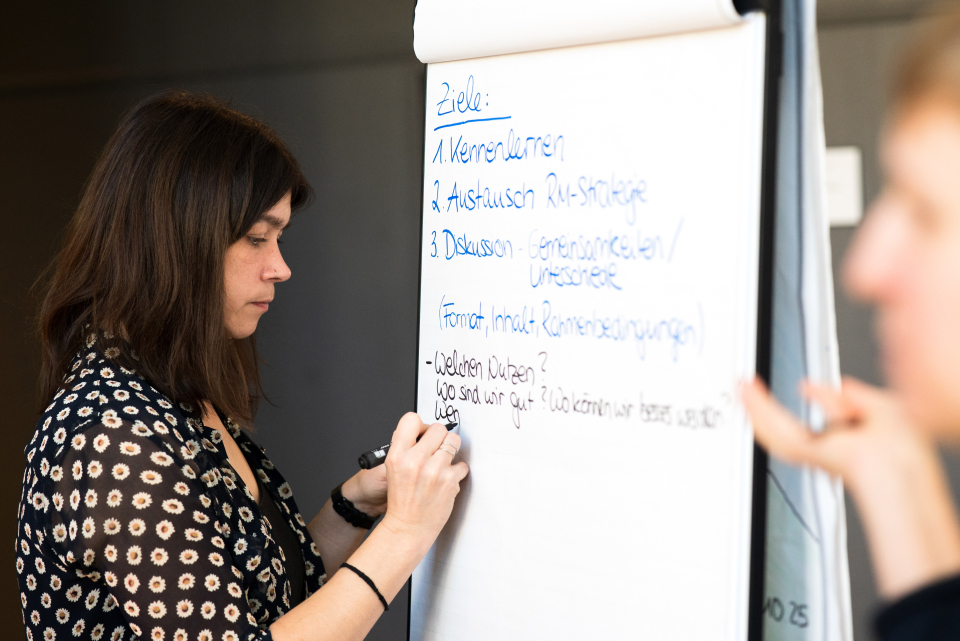 Ziele:
1. Kennenlernen
2. Austausch RM-Strategie
3. Diskussion - Gemeinsamkeiten /
Unterschiede
(Format, Inhalt, Rahmenbedingungen)
- Welchen Nutzen?
Wo sind wir gut? Wo können wir besser werden?
Wen